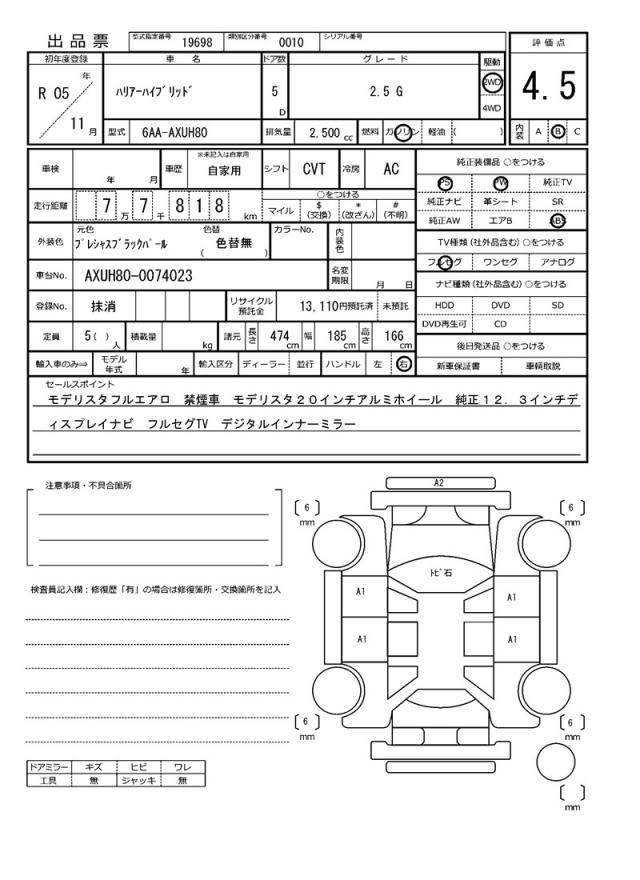 出品票 型式指定番号 19698 類別区分番号 0010 シリアル番号
評価点 4.5
初年度登録 車名 ドア数 グレード 駆動
R 05 年 11 月 ハリアーハイブリッド 5 D 2.5 G 2WD 4WD
型式 6AA-AXUH80 排気量 2,500 cc 燃料 ガソリン 軽油 ( )
内装 A B C
車検 年 月 車歴 ※未記入は自家用 自家用 シフト CVT 冷房 AC
走行距離 7 万 7 千 8 1 8 km
○をつける
マイル $ (交換) * (改ざん) # (不明)
外装色 元色 プレシャスブラックパール 色替 ( 色替無 ) カラーNo. 内装色
車台No. AXUH80-0074023 名変期限 月 日
登録No. 抹消 リサイクル預託金 13,110円預託済 未預託
定員 5( ) 人 積載量 kg 諸元 長さ 474 cm 幅 185 cm 高さ 166 cm
輸入車のみ⇒ モデル年式 年 輸入区分 ディーラー 並行 ハンドル 左 右
純正装備品 ○をつける
PS PW 純正TV
純正ナビ 革シート SR
純正AW エアB ABS
TV種類 (社外品含む) ○をつける
フルセグ ワンセグ アナログ
ナビ種類 (社外品含む) ○をつける
HDD DVD SD
DVD再生可 CD
後日発送品 ○をつける
新車保証書 車輌取説
セールスポイント
モデリスタフルエアロ 禁煙車 モデリスタ20インチアルミホイール 純正12.3インチデ
ィスプレイナビ フルセグTV デジタルインナーミラー
注意事項・不具合箇所
検査員記入欄：修復歴「有」の場合は修復箇所・交換箇所を記入
ドアミラー キズ ヒビ ワレ
工具 無 ジャッキ 無
A2
[ 6 ] mm [ 6 ] mm
トビ石
A1 A1
A1 A1
[ 6 ] mm [ 6 ] mm
[ ] mm